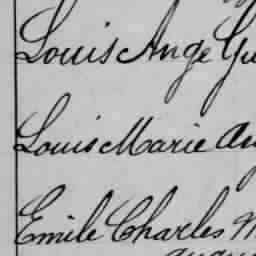 Louis Ange
Louis Marie
Emile Charles